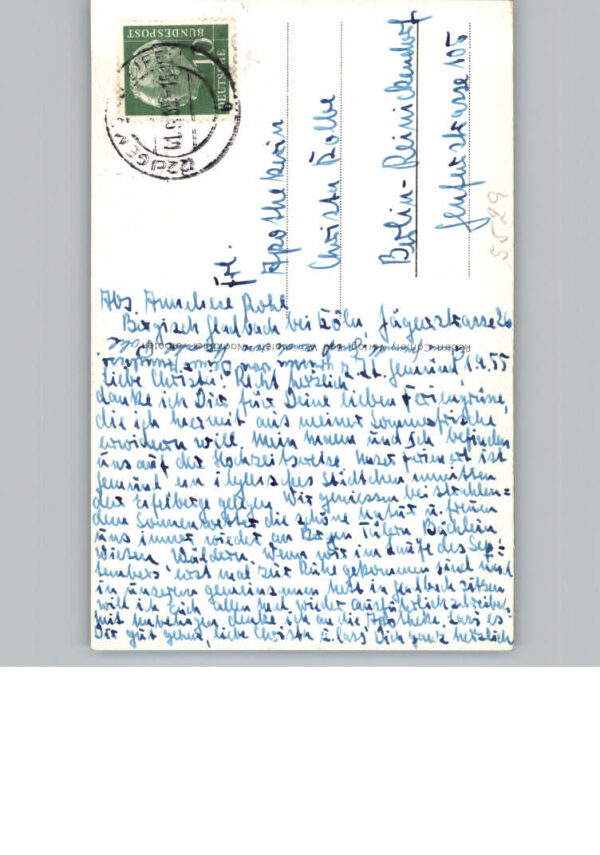 DEUTSCHE
BUNDESPOST
10
Frl.
Apothekerin
Christa Kolbe
Berlin-Reinickendorf
Genfenstrasse 105
5529
Abs. Anneliese Rohe
Bergisch Gladbach bei Köln, Jägerstrasse 26
z. Zt. Gemünd 1.9.55
Liebe Christa! Recht herzlich
danke ich Dir für Deine lieben Feriengrüße,
die ich hiermit aus meiner Sommerfrische
erwidern will. Mein Mann und ich befinden
uns auf der Hochzeitsreise. Unser Ferienort ist
Gemünd, ein Städtchen inmitten
der Eifelberge gelegen. Wir geniessen bei strahlen=
dem Sonnenwetter die schöne Natur u. freuen
uns immer wieder an Bergen Tälern Bächlein
Wiesen Wäldern. Wenn wir im Laufe des Sep=
tembers erst mal zur Ruhe gekommen sind und
in unserem gemeinsamen Nest in Gladbach sitzen
will ich Euch allen mal wieder ausführlich schreiben.
Mit Unbehagen denke ich an die Apotheke. Lass es
Dir gut gehen, liebe Christa u. lass Dich ganz herzlich